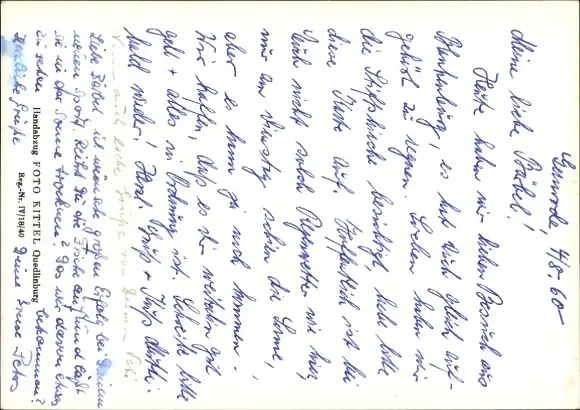 Gernrode, 4/8. 60
Meine liebe Bärbel!
Heute haben wir lieben Besuch aus
Blankenburg, es hat doch gleich auf-
gehört zu regnen. Soeben haben wir
die Stiftskirche besichtigt, habe bitte
diese Karte auf. Hoffentlich ist bei
Euch nicht solch Regenwetter wie hier,
nur am Dienstag schien die Sonne,
aber es kann ja noch kommen.
Wir hoffen, daß es Dir weiterhin gut
geht + alles in Ordnung ist. Schreibe bitte
bald wieder! Herzl. Grüße + Küße
auch liebe Grüße von
Liebe Bärbel ich wünsche großen Erfolg bei Deinem
neuen Sport. Reihst Du die Fische auf und läßt
sie in der Sonne trocknen? Das wir davon etwas
zu sehen bekommen?
Herzliche Grüße Deine
Handabzug FOTO KITTEL Quedlinburg
Reg.-Nr. IV/18/40